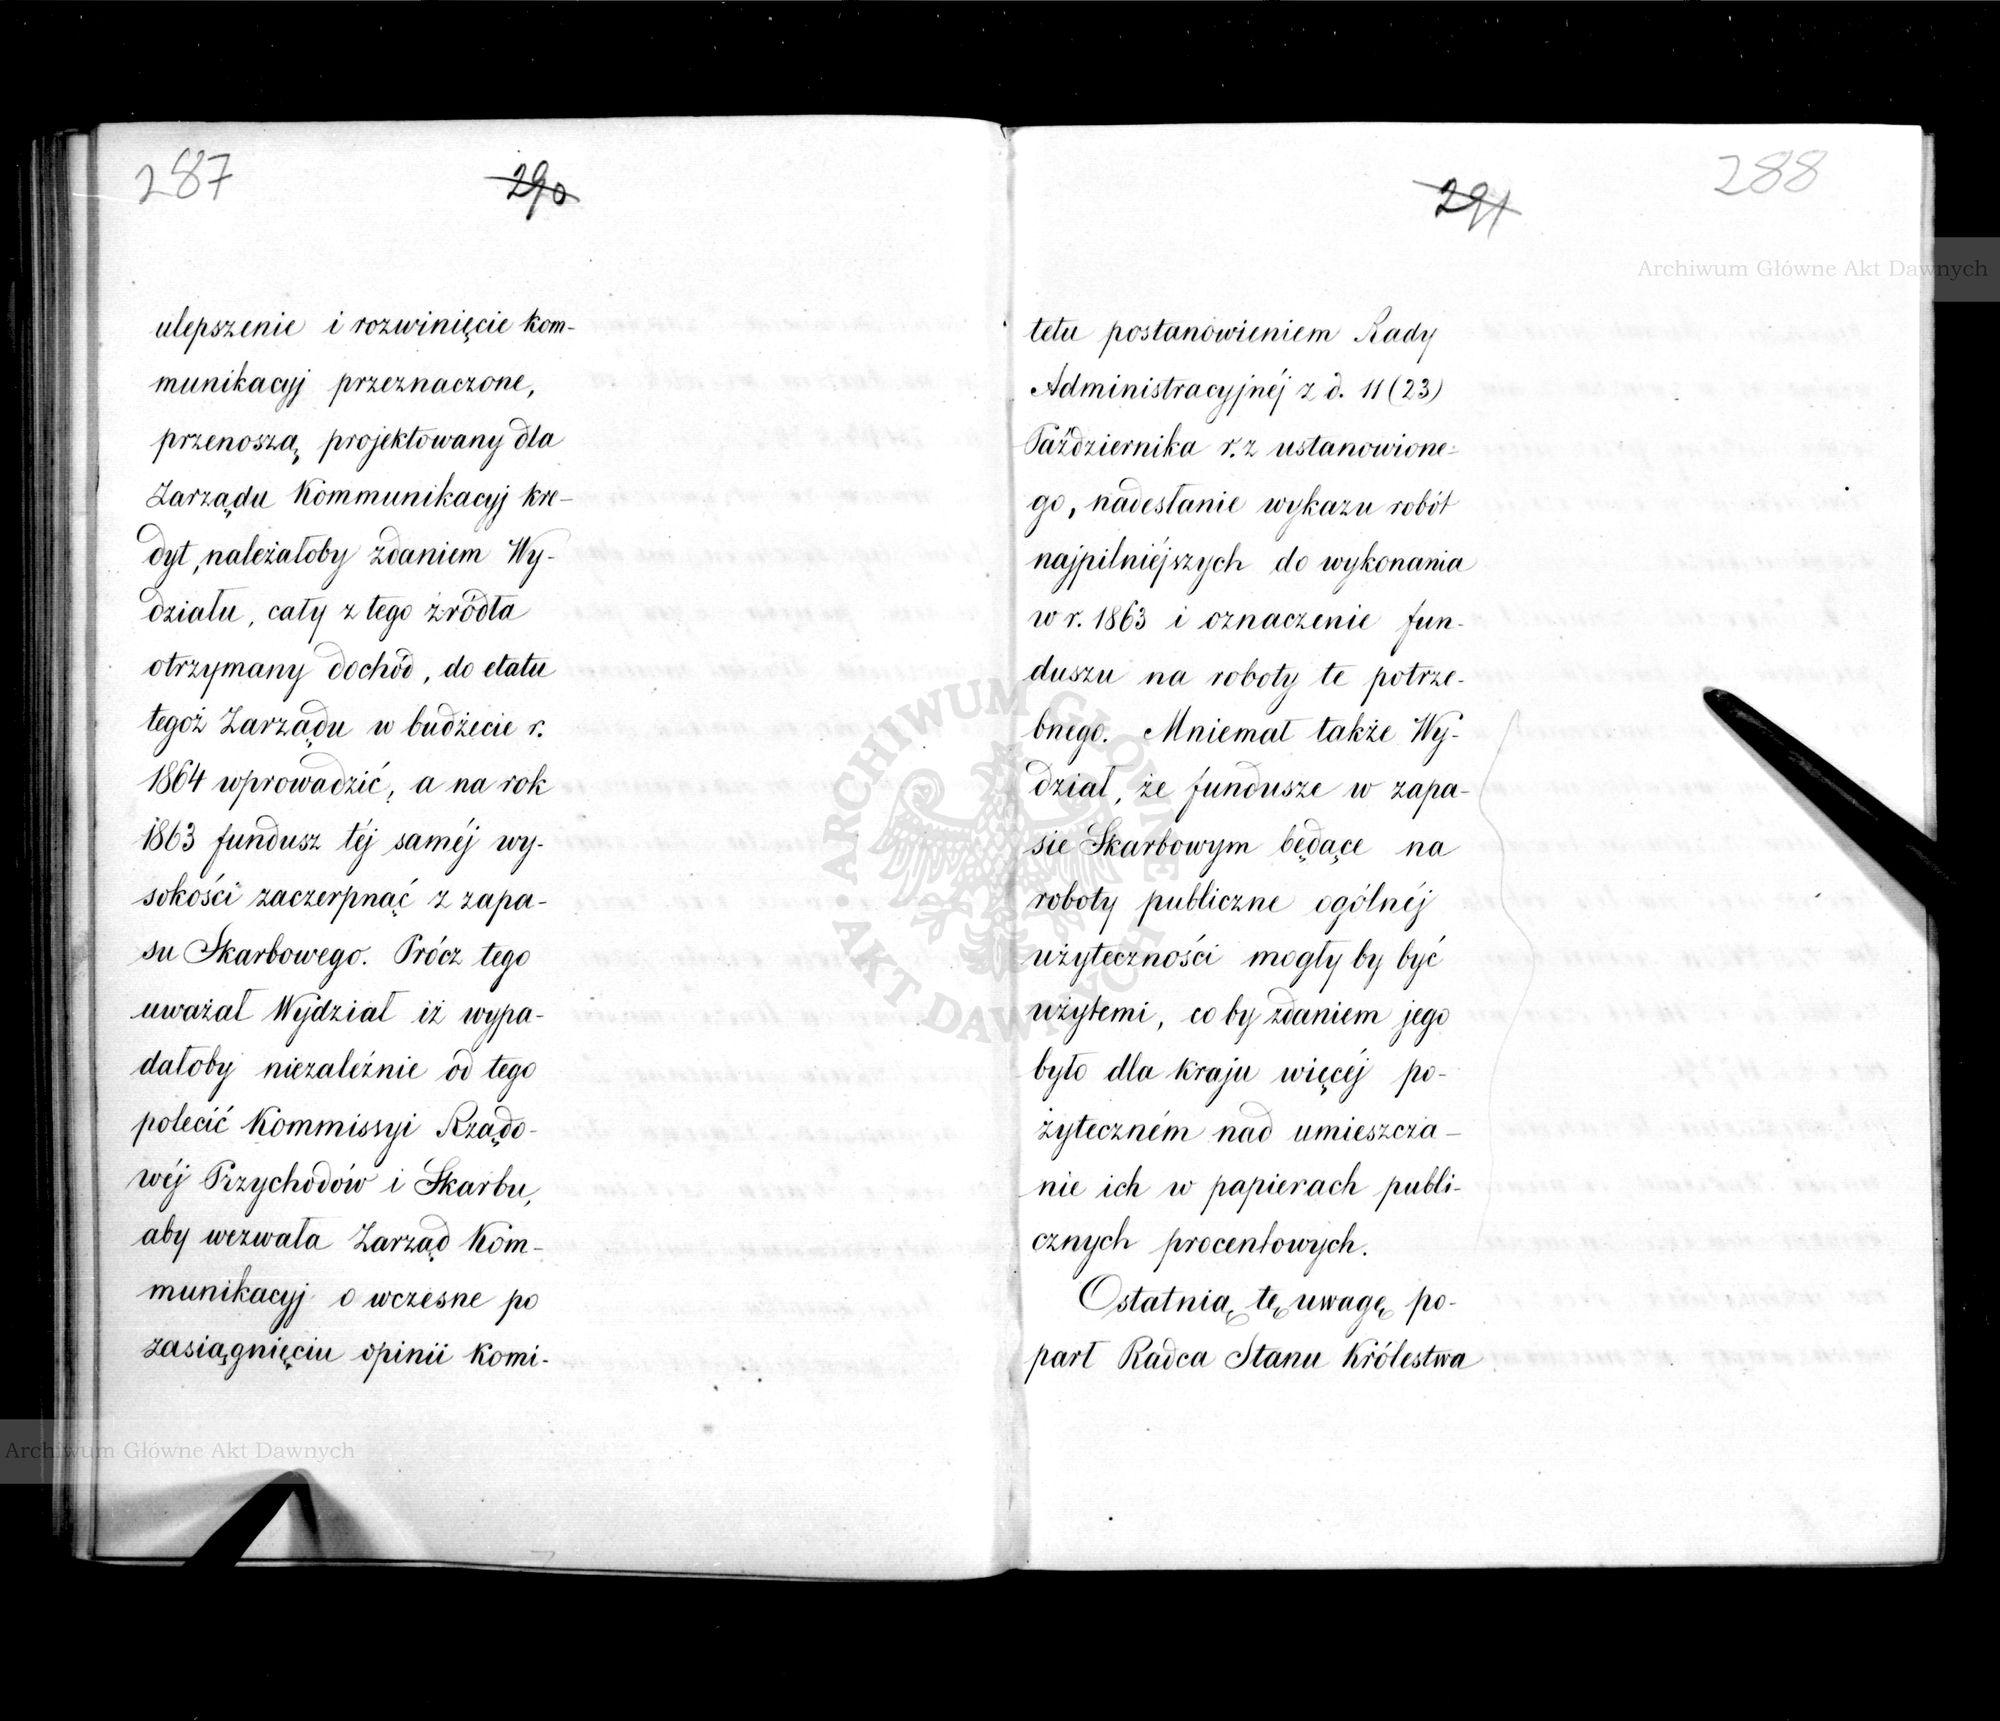 287
290
ulepszenie i rozwinięcie kom-
munikacyj przeznaczone,
przenoszą, projektowany dla
Zarządu Kommunikacyj kre-
dyt, należałoby zdaniem Wy-
działu, cały z tego źródła
otrzymany dochód, do etatu
tegoż Zarządu w budżecie r.
1864 wprowadzić, a na rok
1863 fundusz téj saméj wy-
sokości zaczerpnąć z zapa-
su Skarbowego. Prócz tego
uważał Wydział iż wypa-
dałoby niezależnie od tego
polecić Kommissyi Rządo-
wéj Przychodów i Skarbu,
aby wezwała Zarząd Kom-
munikacyj o wczesne po
zasiągnięciu opinii komi-
288
291
tetu postanowieniem Rady
Administracyjnéj z d. 11 (23)
Października r. z ustanowione-
go, nadesłanie wykazu robót
najpilniéjszych do wykonania
w r. 1863 i oznaczenie fun-
duszu na roboty te potrze-
bnego. Mniemał także Wy-
dział, że fundusze w zapa-
sie Skarbowym będące na
roboty publiczne ogólnéj
użyteczności mogły by być
użytemi, co by zdaniem jego
było dla kraju więcéj po-
żyteczném nad umieszcza-
nie ich w papierach publi-
cznych procentowych.
Ostatnią tę uwagę po-
parł Radca Stanu Królestwa
Archiwum Główne Akt Dawnych
Archiwum Główne Akt Dawnych
ARCHIWUM GŁÓWNE AKT DAWNYCH